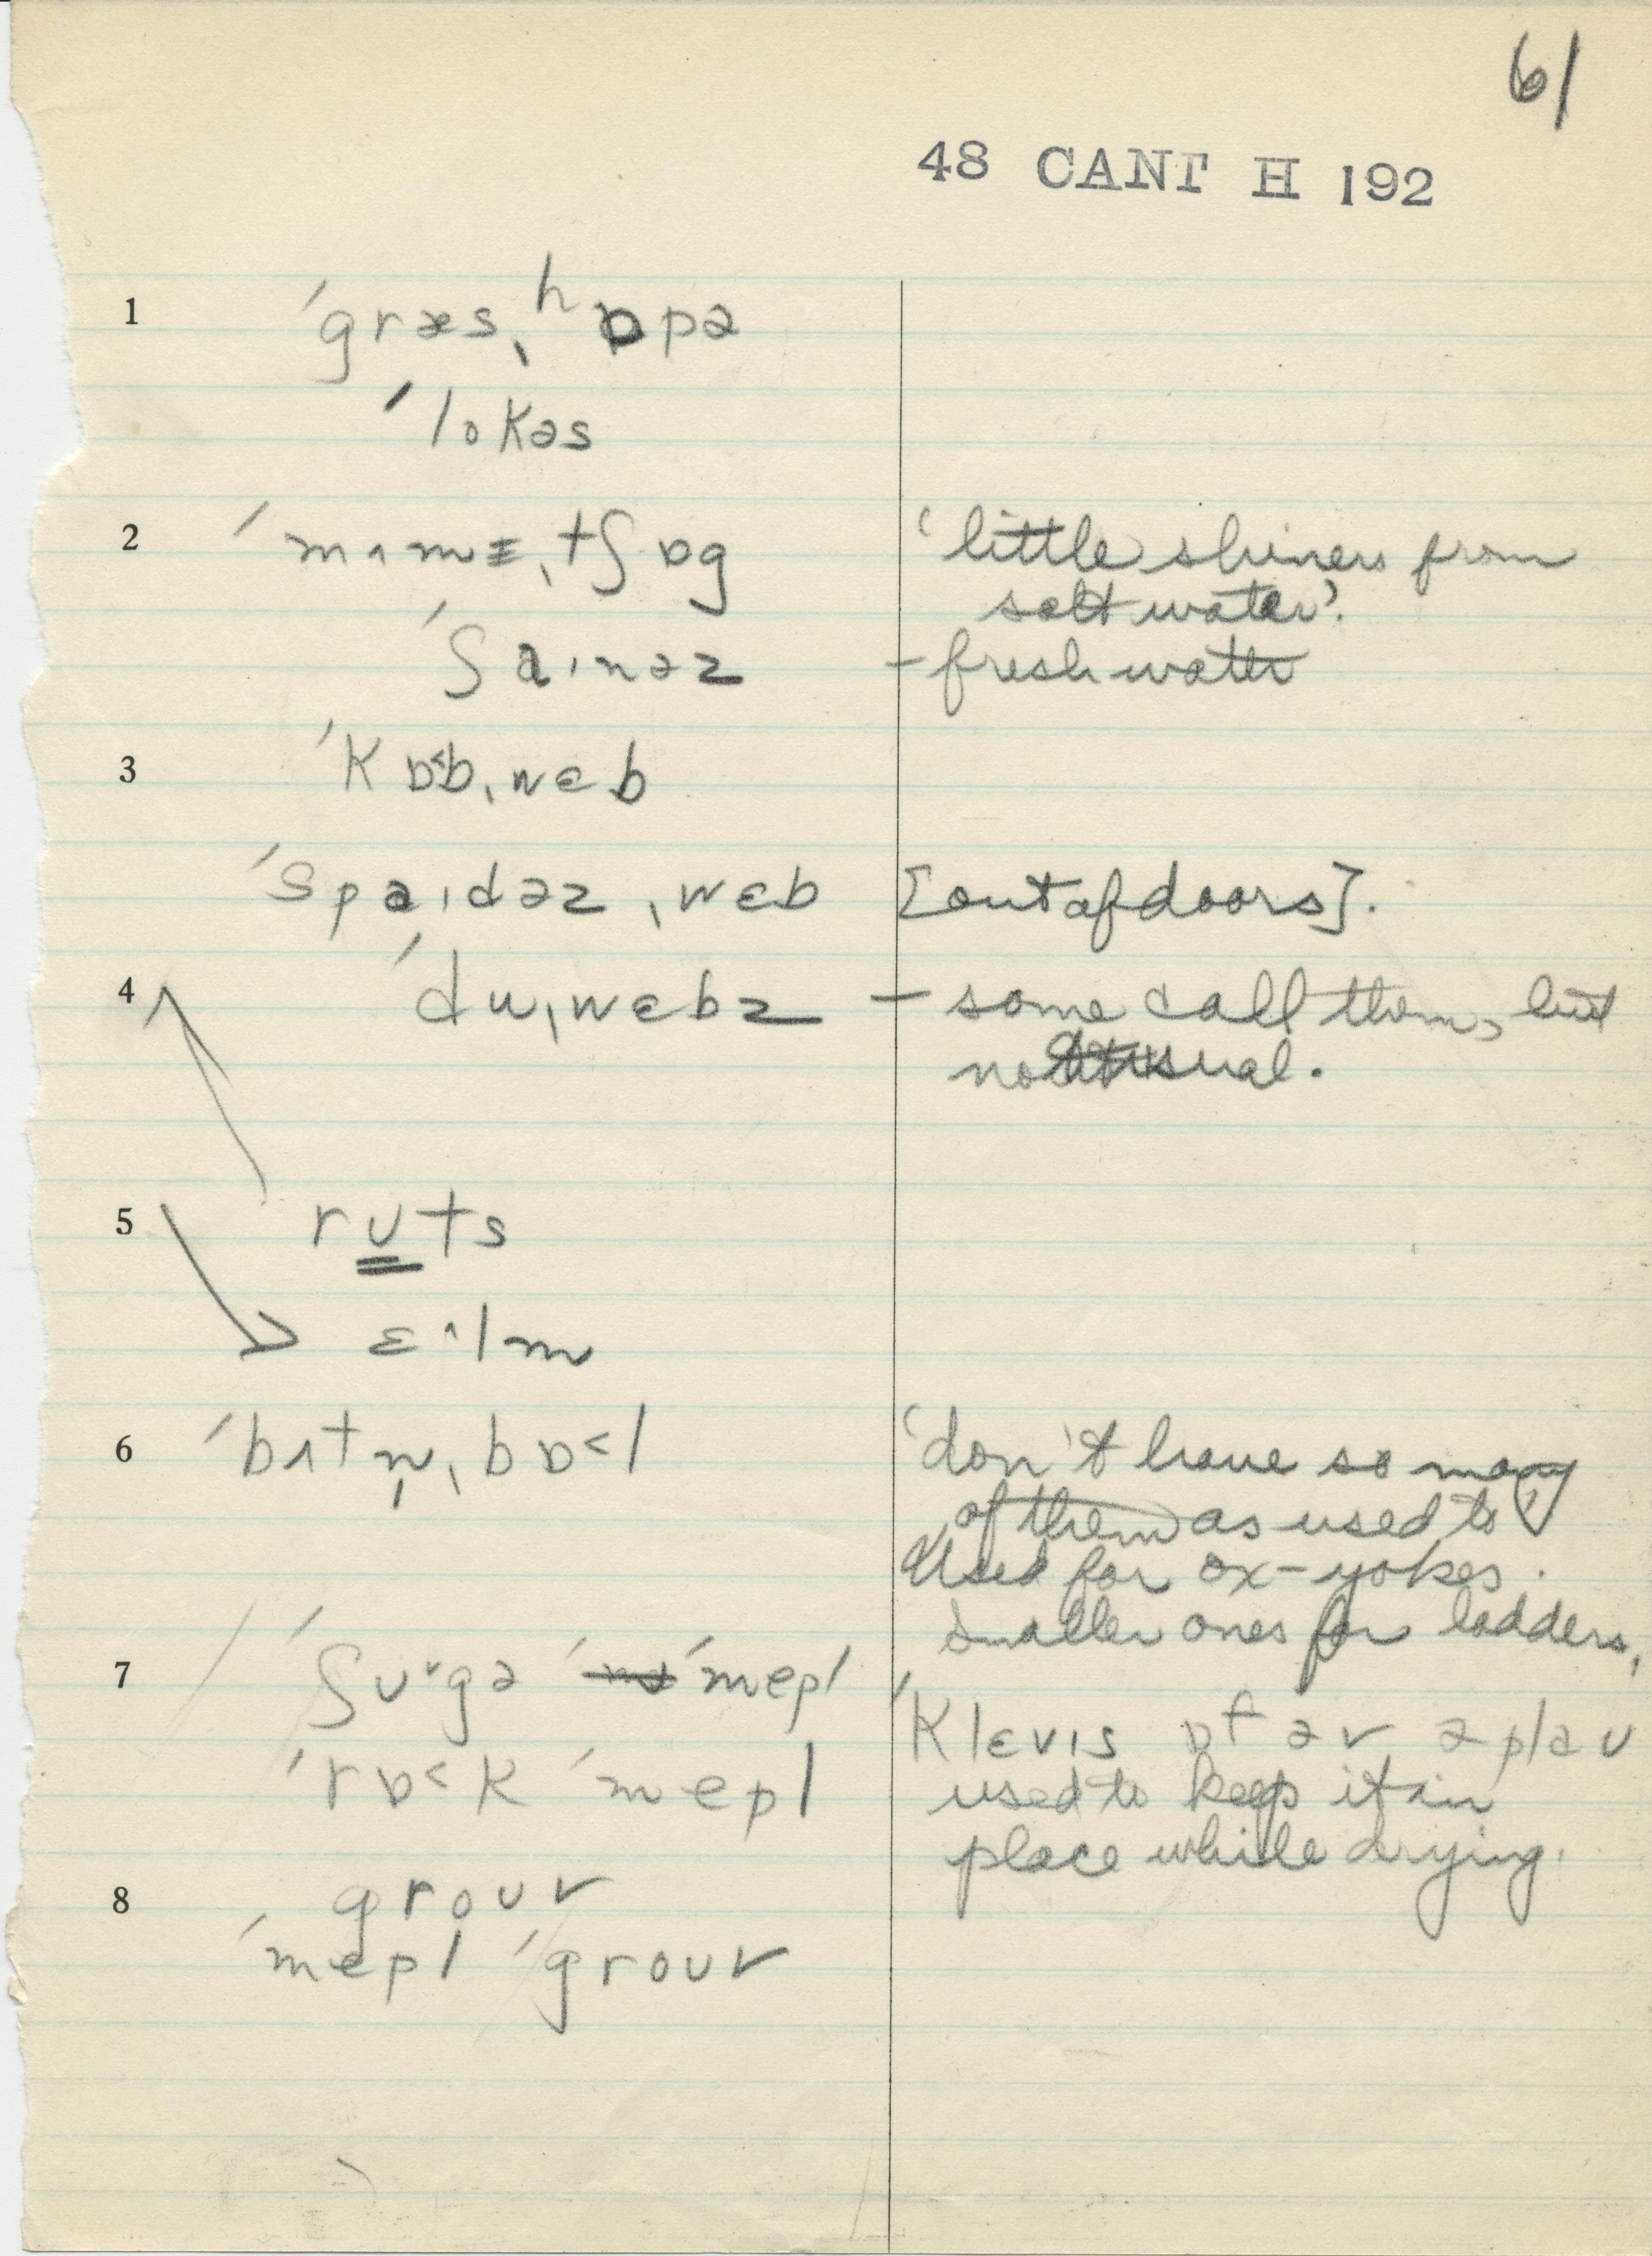 61
48 CANT H 192
1 ˈgræsˌhɒpə
ˈlokəs
2 ˈmʌmɪˌtʃɒg 'little shiners from
salt water'.
ˈʃaɪnəz – fresh water
3 ˈkɒ˂bˌwɛb
ˈspaɪdəzˌwɛb [out of doors].
4 ˈduˌwɛbz – some call them, but
not usual.
5 rʊts
ɛ·^lm
6 ˈbʌtn̩ˌbɒ˂l 'don't have so many
of them as used to'
Used for ox-yokes.
Smaller ones for ladders,
7 ˈʃʊ˅gə ˈmepl
ˈklɛvɪs ɒf əv ə plaʊ
ˈrɒ˂k ˈmepl used to keep it in
place while drying.
8 groʊv
ˈmepl ˈgroʊv